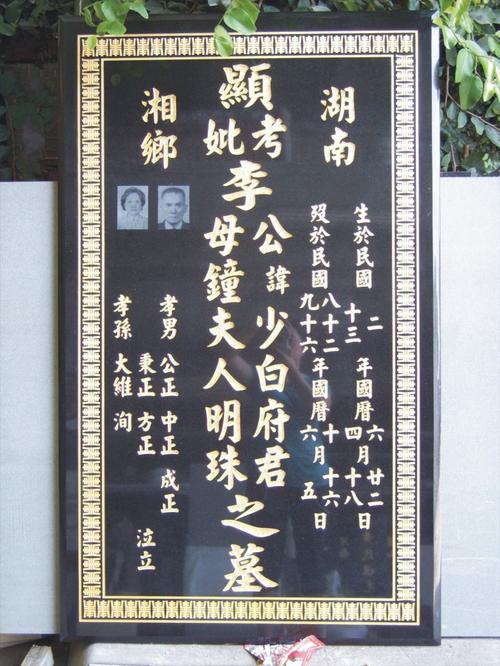 湖南
生於民國 二 十三 年國曆 六 四 月 廿二 十八 日
歿於民國 八十二 九十六 年國曆 十 六 月 十六 五 日
顯考妣李公諱少白府君
母鐘夫人明珠之墓
湘鄉
孝男 公正 中正 成正
秉正 方正
孝孫 大維 洵
泣立